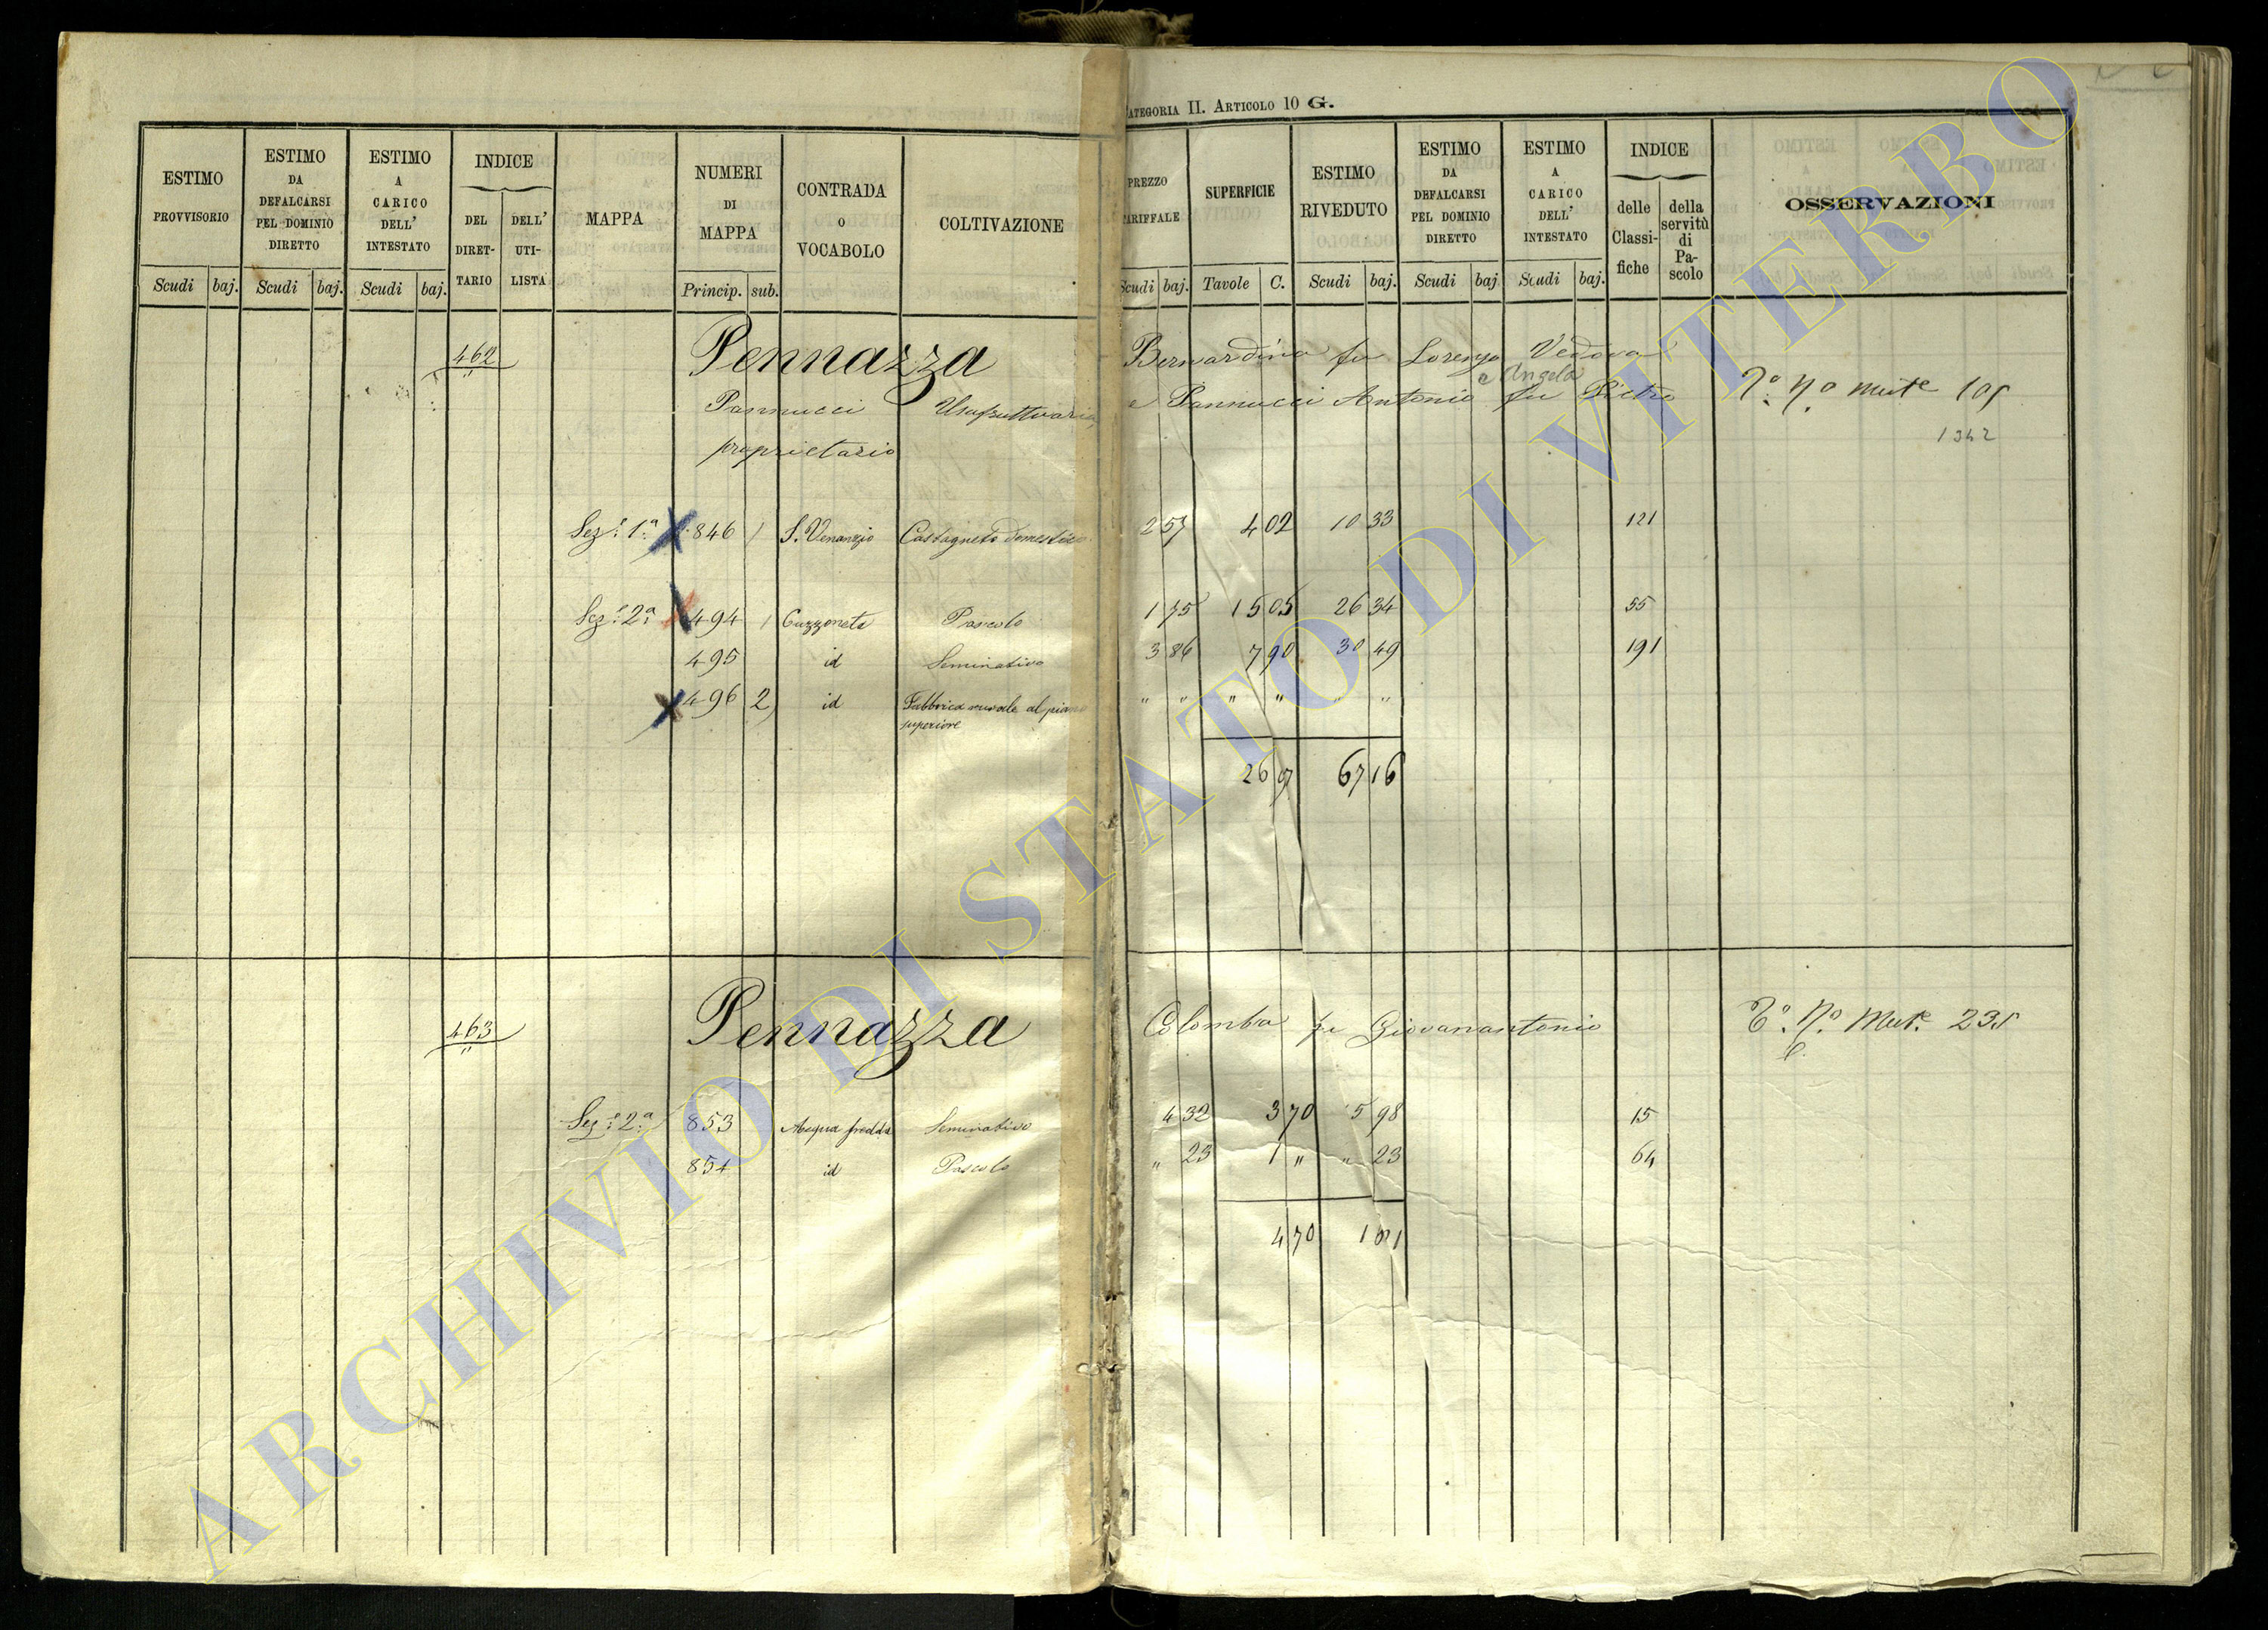 CATEGORIA II. ARTICOLO 10 G.
ESTIMO PROVVISORIO
Scudi baj.
ESTIMO DA DEFALCARSI PEL DOMINIO DIRETTO
Scudi baj.
ESTIMO A CARICO DELL' INTESTATO
Scudi baj.
INDICE
DEL DIRET-TARIO
DELL' UTI-LISTA
MAPPA
NUMERI DI MAPPA
Princip. sub.
CONTRADA O VOCABOLO
COLTIVAZIONE
PREZZO TARIFFALE
Scudi baj.
SUPERFICIE
Tavole C.
ESTIMO RIVEDUTO
Scudi baj.
ESTIMO DA DEFALCARSI PEL DOMINIO DIRETTO
Scudi baj
ESTIMO A CARICO DELL' INTESTATO
Scudi baj.
INDICE
delle Classi-fiche
della servitù di Pa-scolo
OSSERVAZIONI
462 Pennazza Bernardina fu Lorenzo Vedova
e Angela
Pannucci Usufruttuaria, e Pannucci Antonio fu Pietro Nº mute 105
1342
proprietario
Sezᵉ 1ª 846 1 S. Venanzio Castagneto domestico 2 57 4 02 10 33 121
Sezᵉ 2ª 494 1 Cuzzoneta Pascolo 1 75 15 05 26 34 55
495 id Seminativo 3 86 7 90 30 49 191
496 2 id Fabbrica rurale al piano " " " " " "
superiore
26 97 67 16
463 Pennazza Colomba fu Giovanantonio Nº Mute. 235
Sezᵉ 2ª 853 Acqua fredda Seminativo 4 32 3 70 15 98 15
854 id Pascolo " 23 1 " " 23 64
4 70 16 21
ARCHIVIO DI STATO DI VITERBO